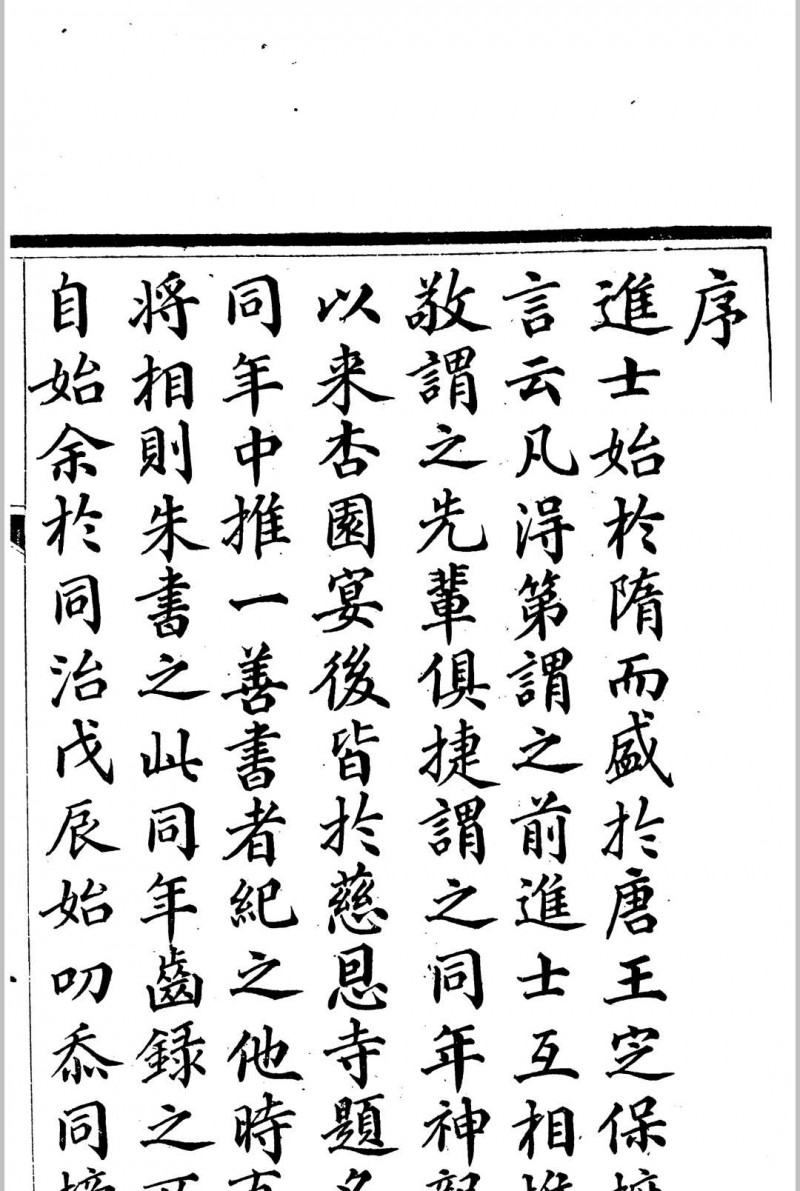 序
進士始於隋而盛於唐王定保
言云凡得第謂之前進士互相
敬謂之先輩俱捷謂之同年神
以来杏園宴後皆於慈恩寺題
同年中推一善書者紀之他時
将相則朱書之此同年齒錄之
自始余於同治戊辰始叨忝同